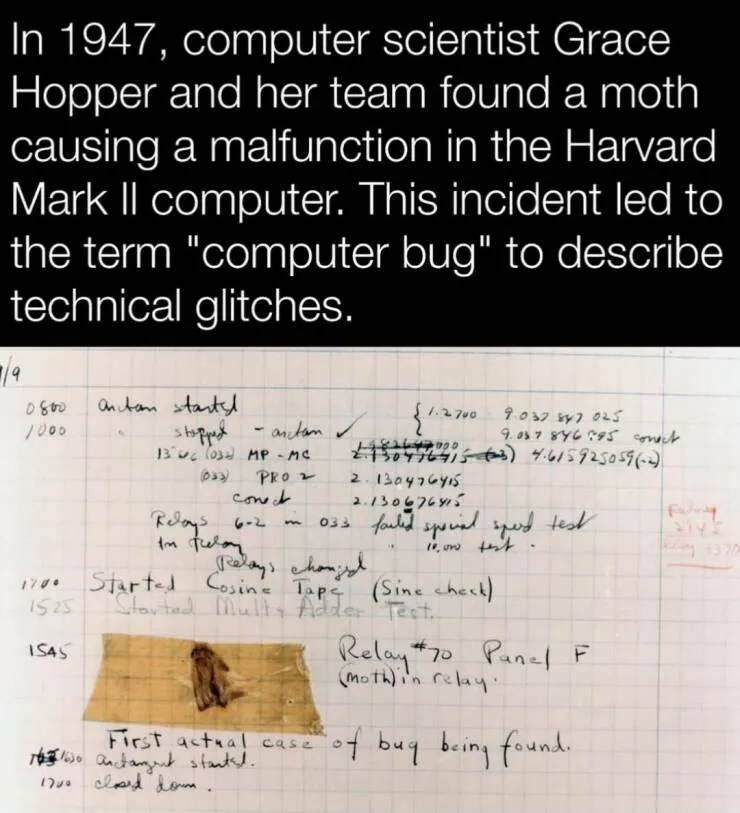 In 1947, computer scientist Grace
Hopper and her team found a moth
causing a malfunction in the Harvard
Mark II computer. This incident led to
the term "computer bug" to describe
technical glitches.
/9
0800 antan started
1000 " stopped - antan ✓ { 1.2700 9.037 847 025
9.037 846 995 correct
13"uc (032) MP - MC 4.615925059(-2)
(033) PRO 2 2.130476415
correct 2.130676415
Relays 6-2 in 033 failed special speed test
in relay " 10,000 test .
Relay
Relays changed
1700 Started Cosine Tape (Sine check)
1525 Started Mult+ Adder Test.
1545 Relay #70 Panel F
(moth) in relay.
First actual case of bug being found.
1630 antangent started.
1700 closed down .